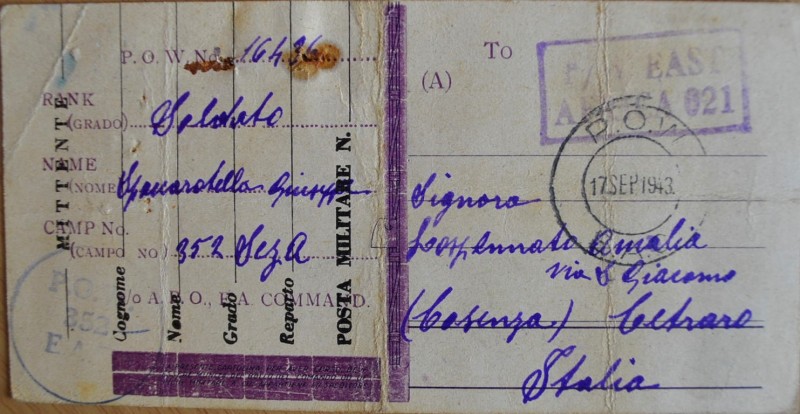 P.O.W. No. 16436
RANK
(GRADO) Soldato
NAME
(NOME) Giuseppe
CAMP No.
(CAMPO NO) 352 Sez A
c/o A.P.O., E.A. COMMAND.
MITTENTE
Cognome
Nome
Grado
Reparto
POSTA MILITARE N.
P.O.
352
E.A.
To
(A)
P/W EAST
AFRICA 021
P.O.W.
17 SEP 1943
Signora
Amalia
Via S Giacomo
(Cosenza) Cetraro
Italia